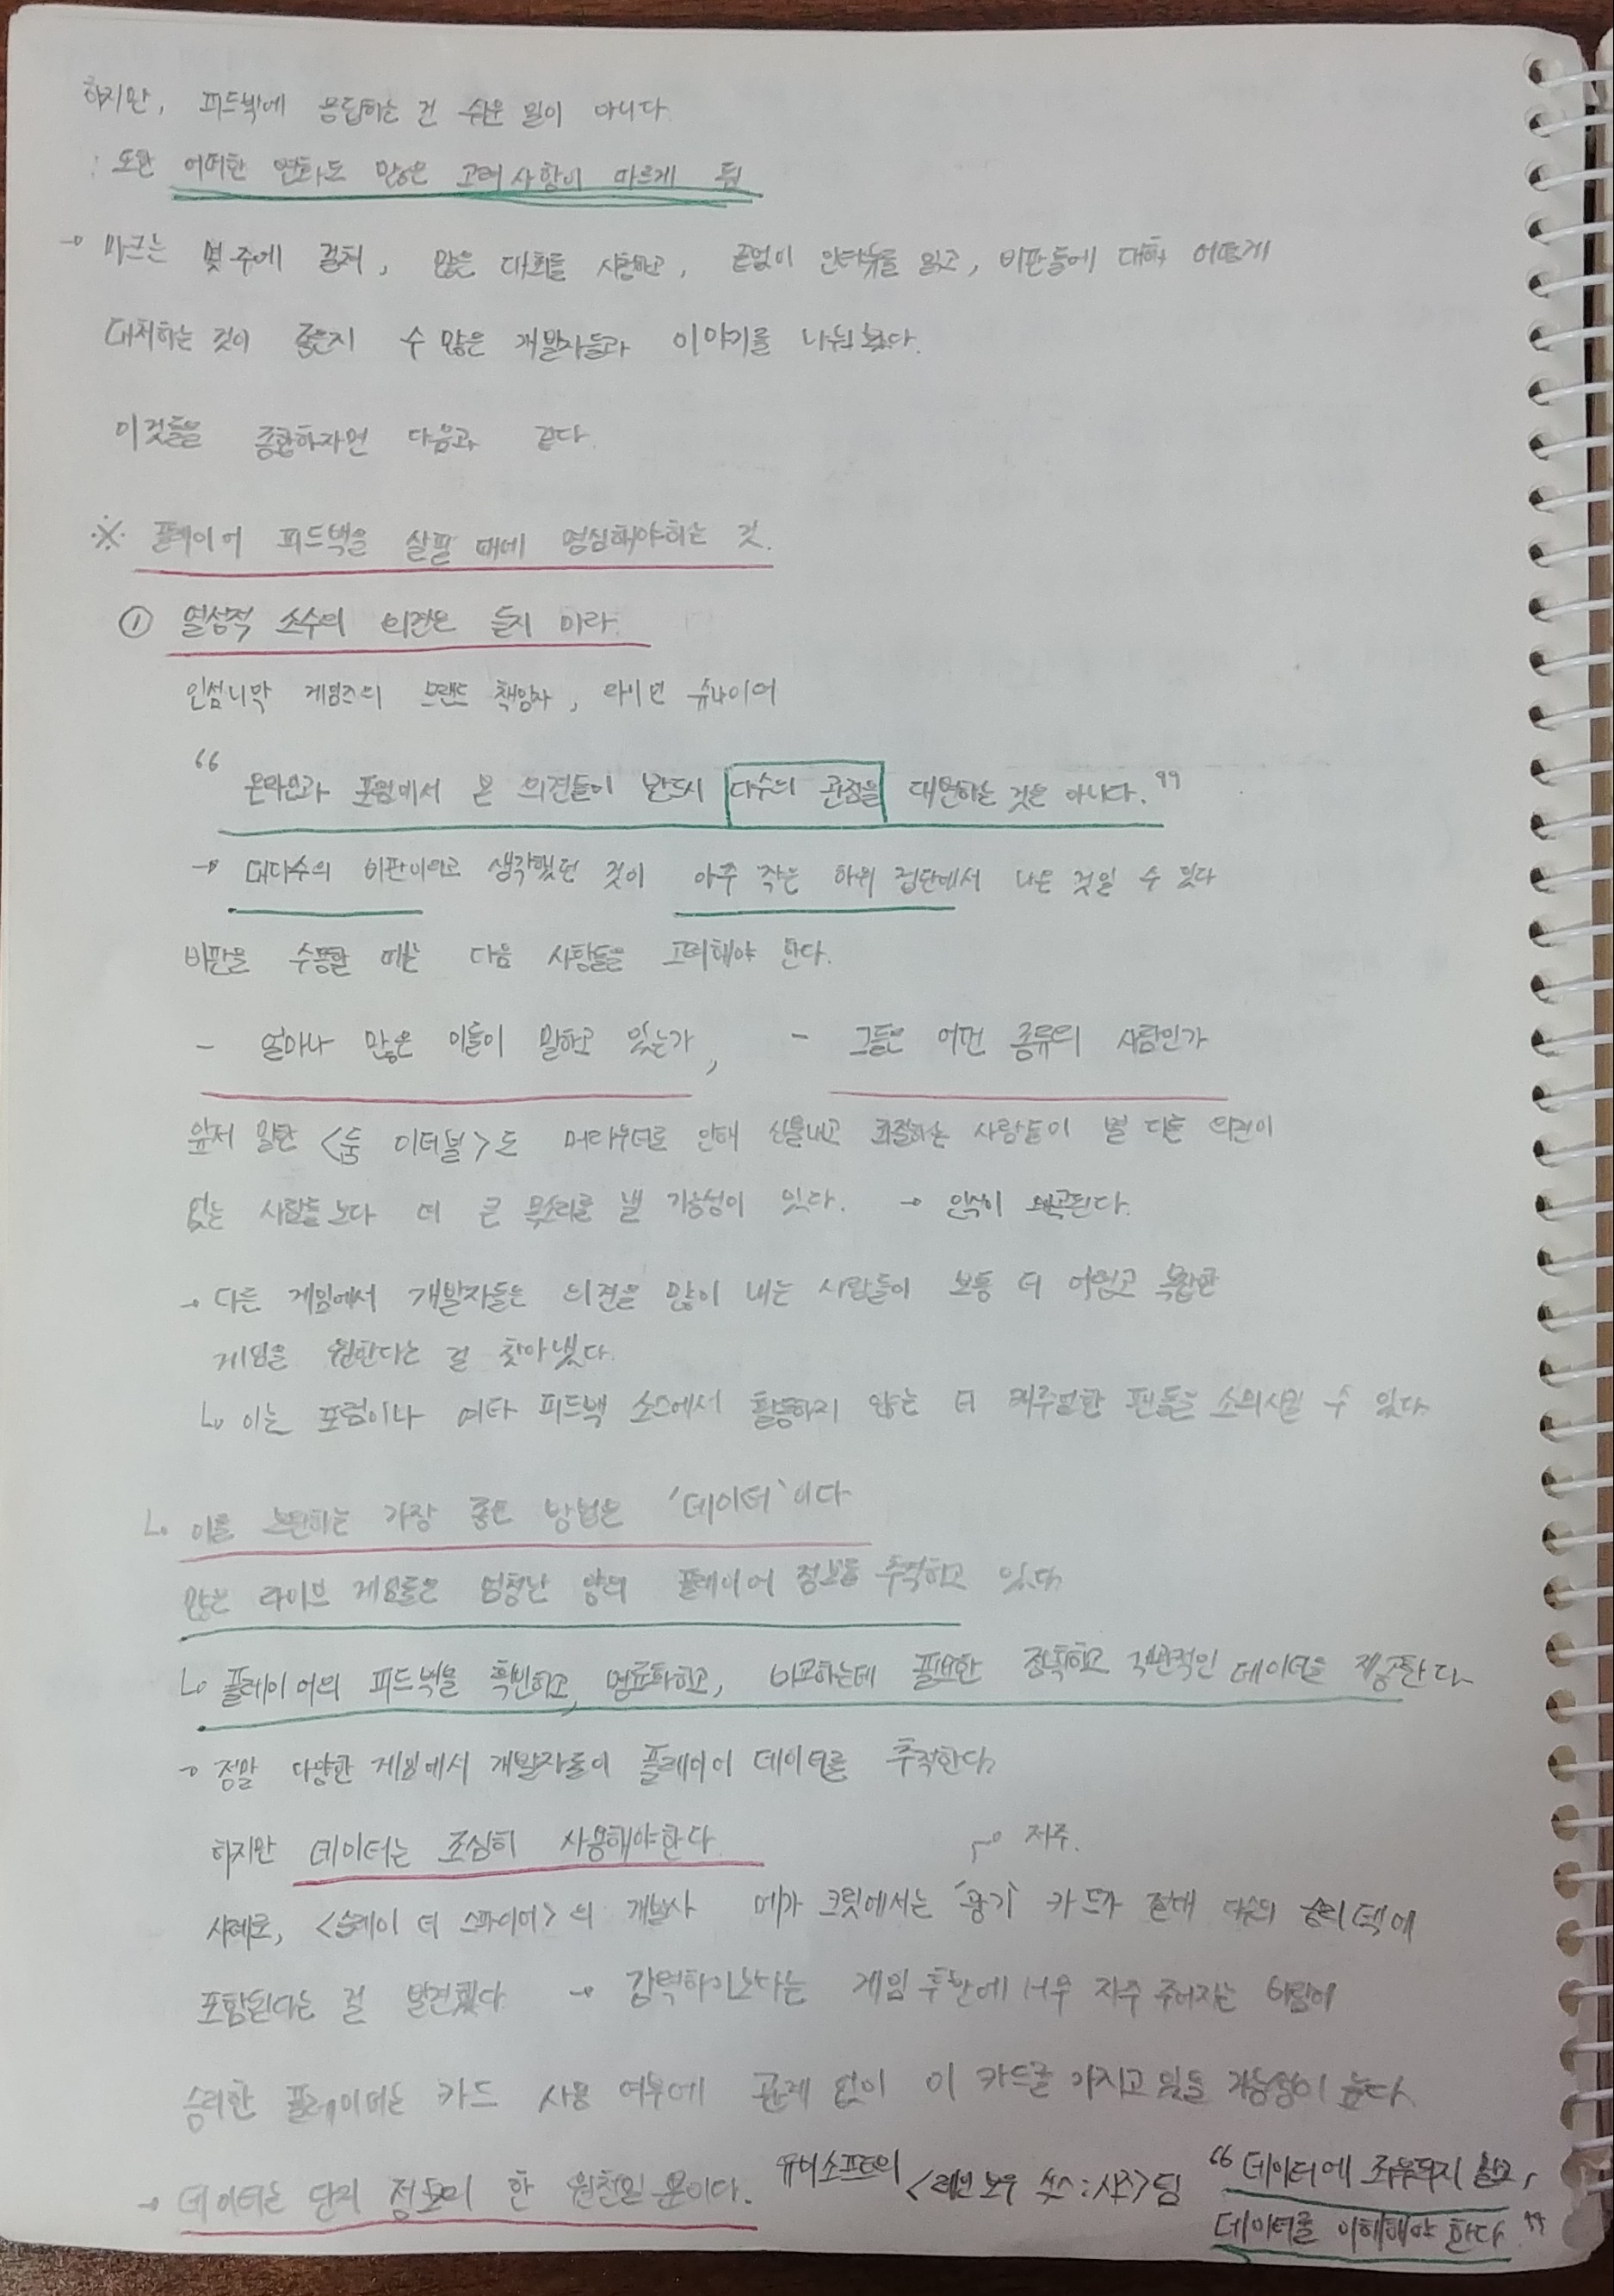 하지만, 피드백에 응답하는 건 쉬운 일이 아니다.
: 또한 어떠한 변화도 많은 고려 사항이 따르게 됨
→ 마크는 몇 주에 걸쳐, 많은 대화를 시청하고, 끝없이 인터뷰를 읽고, 비판들에 대해 어떻게
대처하는 것이 좋은지 수 많은 개발자들과 이야기를 나눠 봤다.
이것들을 종합하자면 다음과 같다.
※ 플레이어 피드백을 살필 때에 명심해야하는 것.
① 열성적 소수의 의견은 듣지 마라.
인섬니악 게임즈의 브랜드 책임자, 라이언 슈나이더
“ 온라인과 포럼에서 본 의견들이 반드시 다수의 관점을 대변하는 것은 아니다. ”
→ 대다수의 비판이라고 생각했던 것이 아주 작은 하위 집단에서 나온 것일 수 있다
비판을 수용할 때는 다음 사항들을 고려해야 한다.
- 얼마나 많은 이들이 말하고 있는가, - 그들은 어떤 종류의 사람인가
앞서 말한 <둠 이터널>도 머라우더로 인해 신물내고 좌절하는 사람들이 별 다른 의견이
없는 사람들 보다 더 큰 목소리를 낼 가능성이 있다. → 인식이 왜곡된다.
→ 다른 게임에서 개발자들은 의견을 많이 내는 사람들이 보통 더 어렵고 복잡한
게임을 원한다는 걸 찾아냈다.
↳ 이는 포럼이나 여타 피드백 소스에서 활동하지 않는 더 캐주얼한 팬들을 소외시킬 수 있다.
↳ 이를 보완하는 가장 좋은 방법은 '데이터'이다
많은 라이브 게임들은 엄청난 양의 플레이어 정보를 추적하고 있다.
↳ 플레이어의 피드백을 확인하고, 명료화하고, 비교하는데 필요한 정확하고 객관적인 데이터를 제공한다.
→ 정말 다양한 게임에서 개발자들이 플레이어 데이터를 추적한다.
하지만 데이터는 조심히 사용해야한다.
저주.
사례로, <슬레이 더 스파이어>의 개발사 메가 크릿에서는 '광기' 카드가 절대 다수의 승리 덱에
포함된다는 걸 발견했다. → 강력하기보다는 게임 후반에 너무 자주 주어지는 바람에
승리한 플레이어는 카드 사용 여부에 관계 없이 이 카드를 가지고 있을 가능성이 높다.
→ 데이터는 단지 정보의 한 원천일 뿐이다. 유비소프트의 <레인보우 식스 : 시즈>팀 “데이터에 좌우되지 말고,
데이터를 이해해야 한다.”